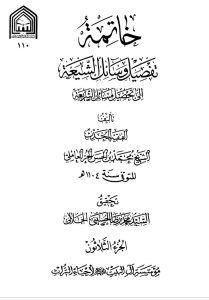 ١١٠
خاتمة
تفصيل وسائل الشيعة
إلى تحصيل مسائل الشريعة
تأليف
الفقيه المحدث
الشيخ محمد بن الحسن الحر العاملي
المتوفى سنة ١١٠٤ هـ
تحقيق
السيد محمد رضا الحسيني الجلالي
الجزء الثلاثون
مؤسسة آل البيت لإحياء التراث